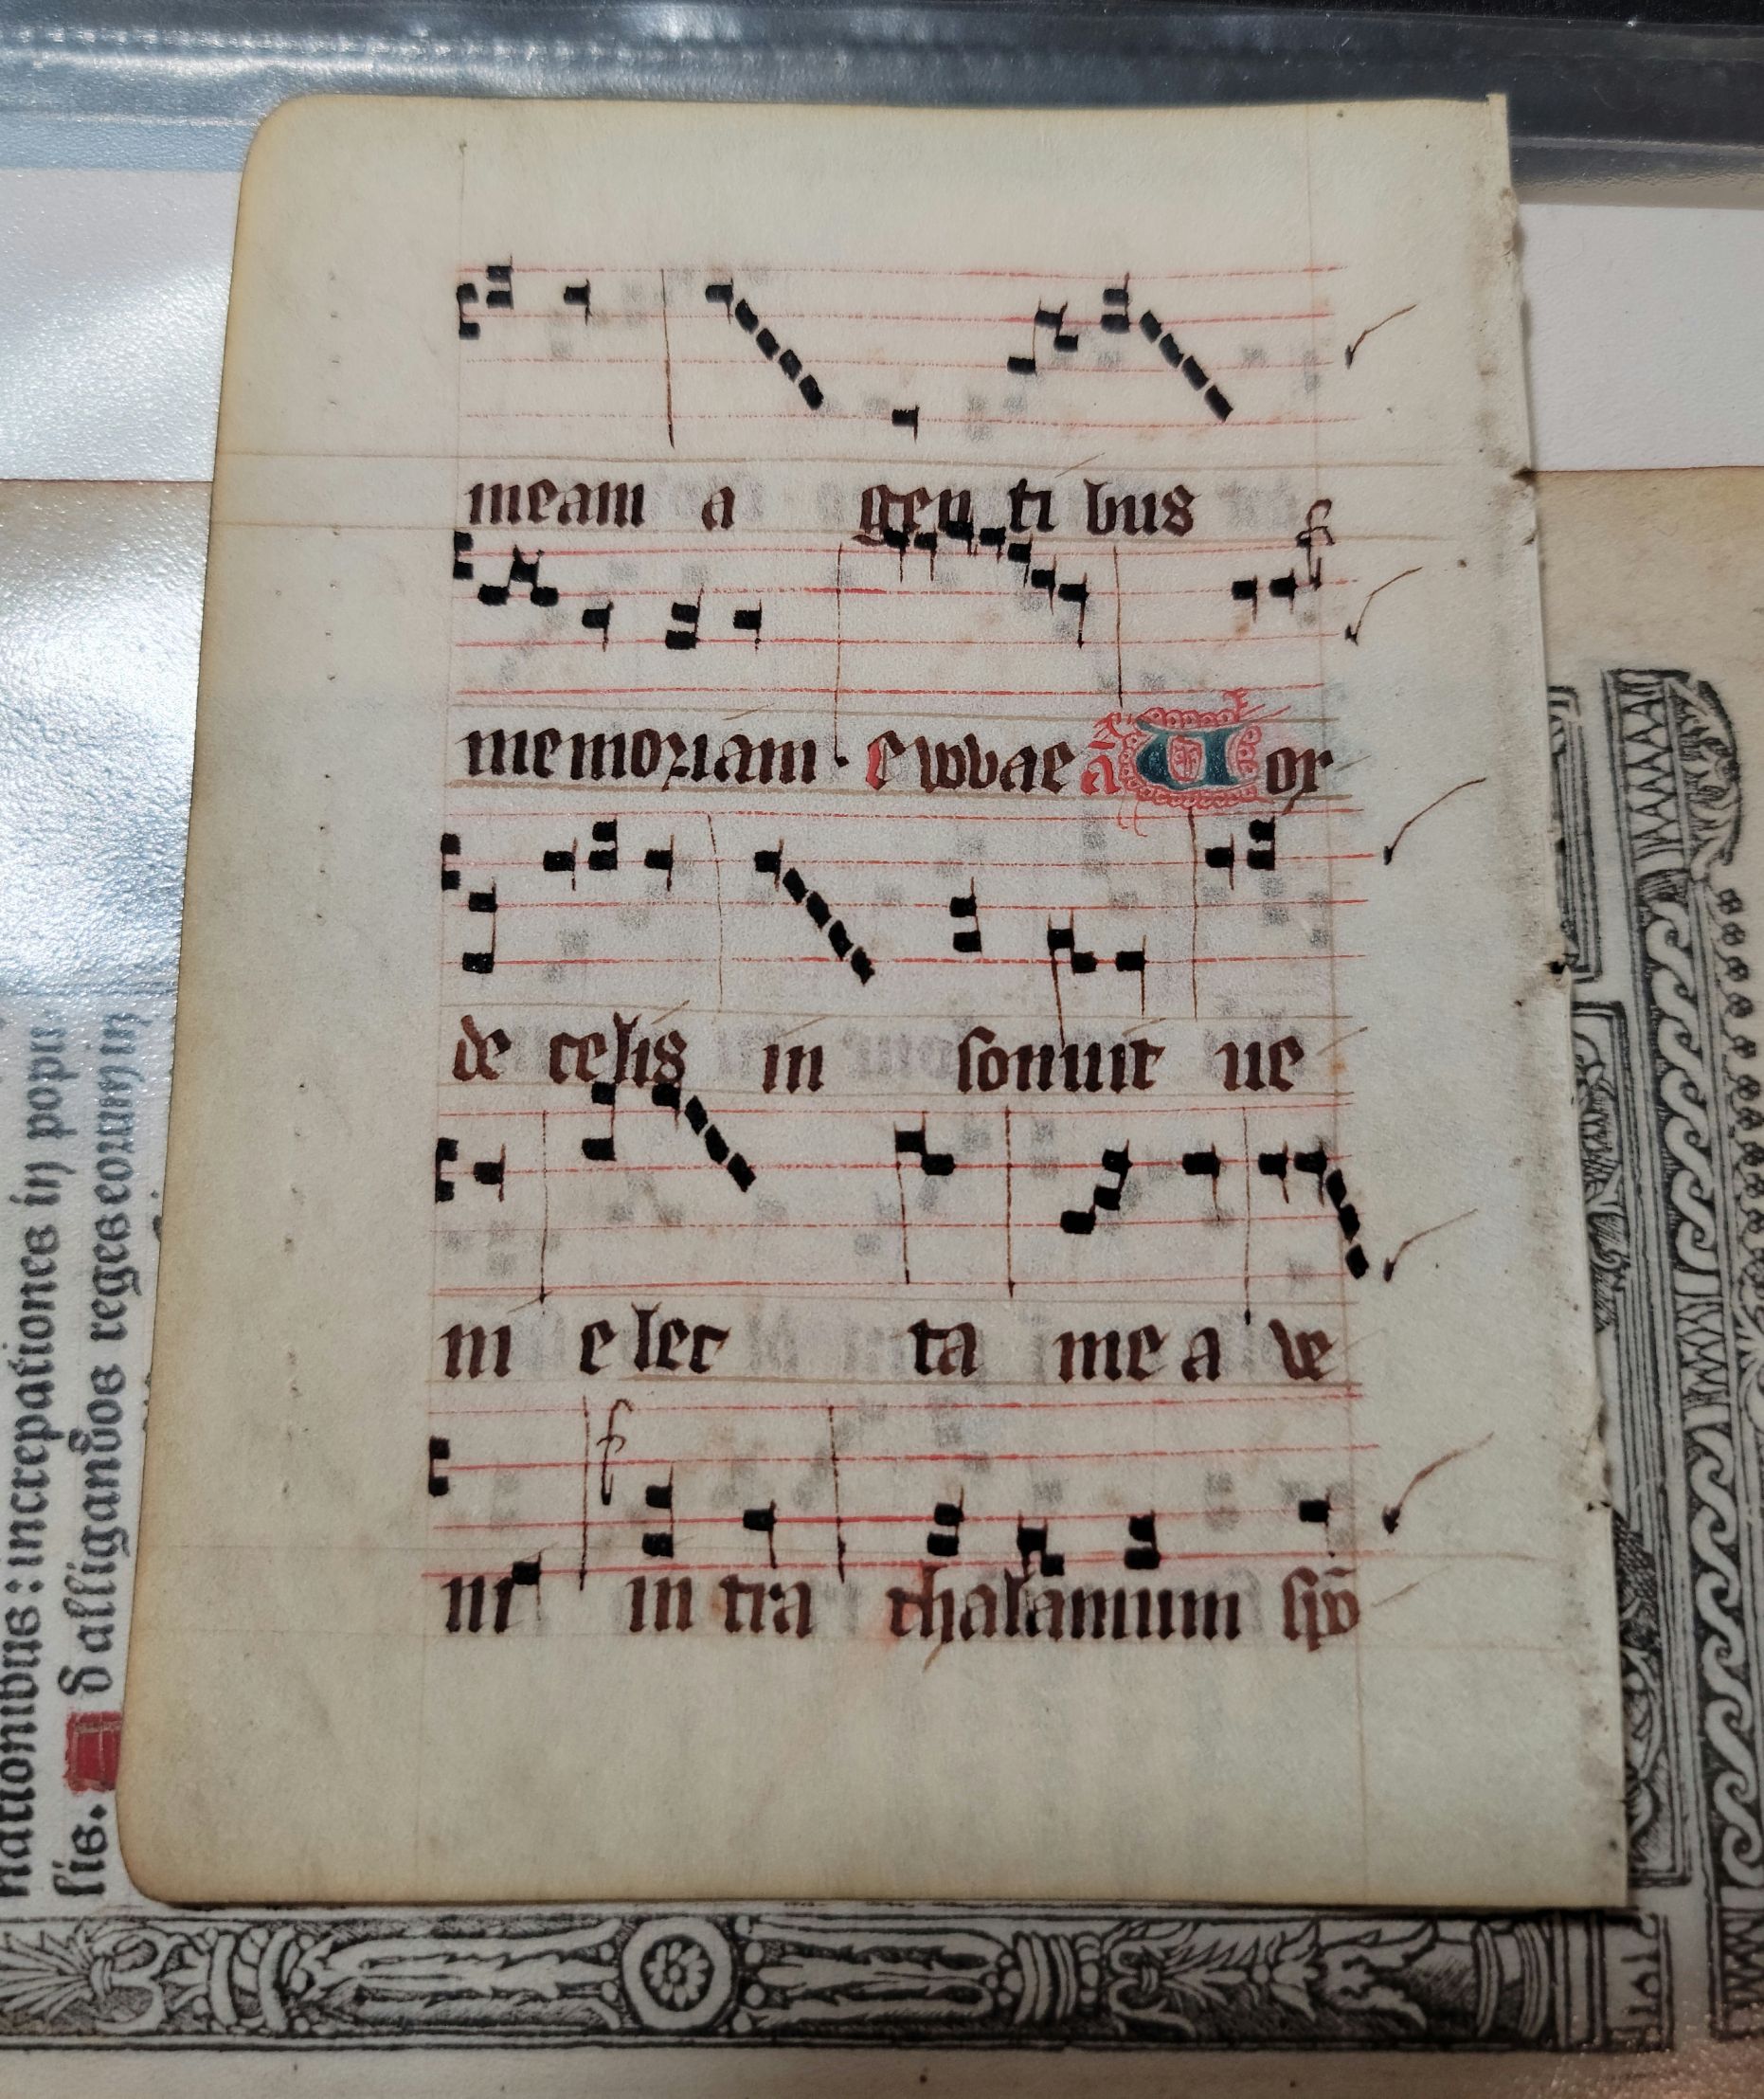 meam a gen ti bus
memoriam · e uouae ā Uor
de celis in sonuit ue
ni e lec ta me a ve
ni in tra thalamum spō
nationibus : increpationes in popu
lis. d alligandos reges eorum in